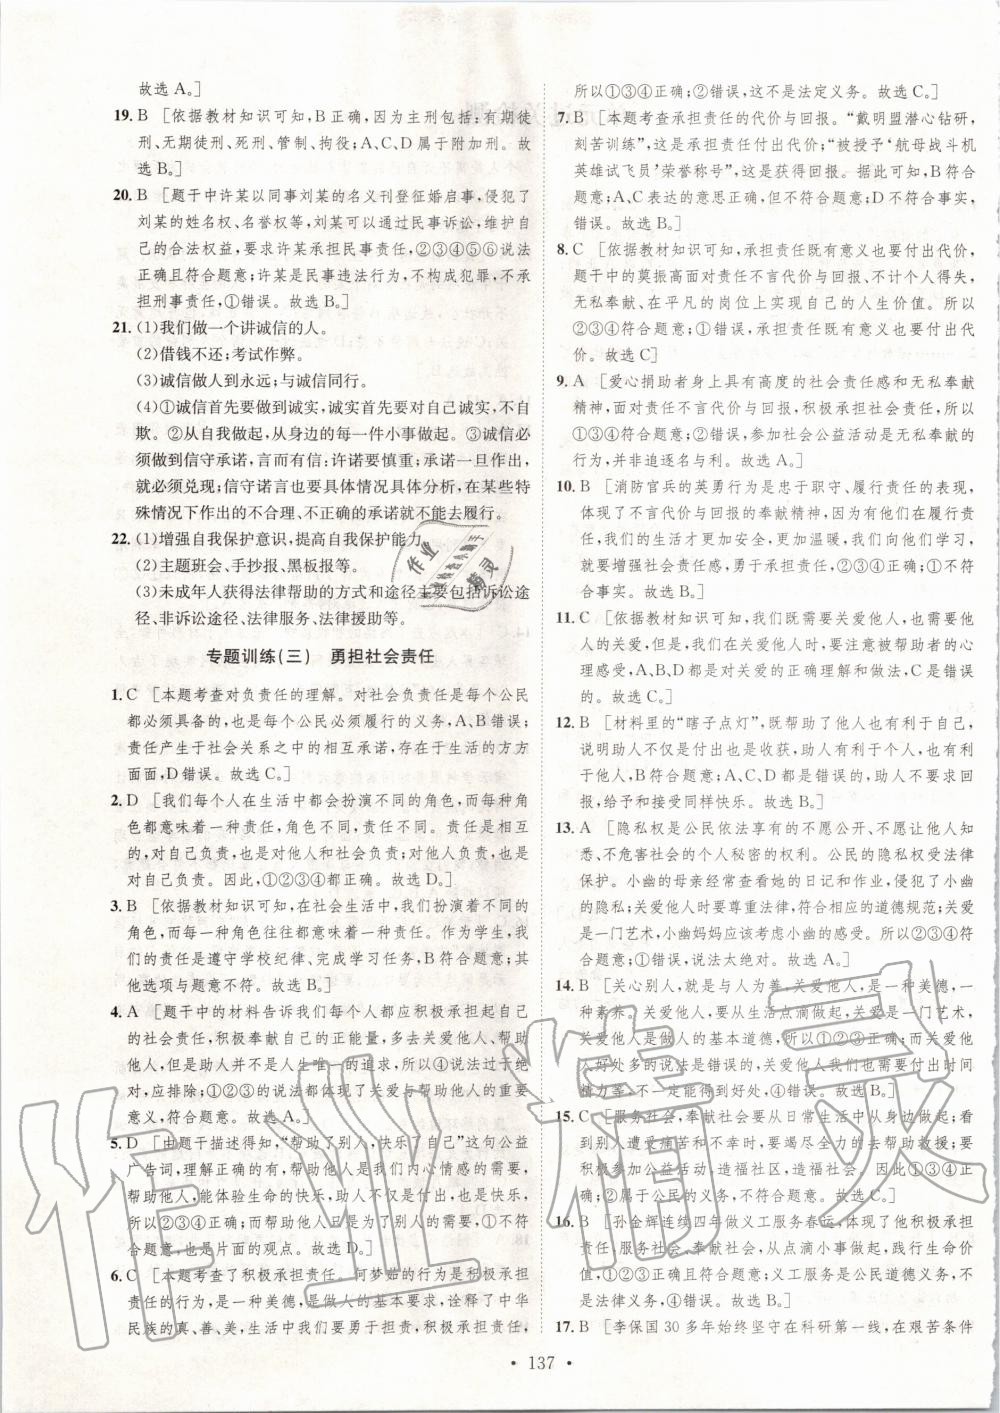 故选A。]
19. B [依据教材知识可知,B正确,因为主刑包括:有期徒
刑、无期徒刑、死刑、管制、拘役;A、C、D属于附加刑。故
选B。]
20. B [题干中许某以同事刘某的名义刊登征婚启事,侵犯了
刘某的姓名权、名誉权等,刘某可以通过民事诉讼,维护自
己的合法权益,要求许某承担民事责任,②③④⑤⑥说法
正确且符合题意;许某是民事违法行为,不构成犯罪,不承
担刑事责任,①错误。故选B。]
21. (1)我们做一个讲诚信的人。
(2)借钱不还;考试作弊。
(3)诚信做人到永远;与诚信同行。
(4)①诚信首先要做到诚实,诚实首先要对自己诚实,不自
欺。②从自我做起,从身边的每一件小事做起。③诚信必
须做到信守承诺,言而有信:许诺要慎重;承诺一旦作出,
就必须兑现;信守诺言要具体情况具体分析,在某些特
殊情况下作出的不合理、不正确的承诺就不能去履行。
22. (1)增强自我保护意识,提高自我保护能力。
(2)主题班会、手抄报、黑板报等。
(3)未成年人获得法律帮助的方式和途径主要包括诉讼途
径、非诉讼途径、法律服务、法律援助等。
专题训练(三) 勇担社会责任
1. C [本题考查对负责任的理解。对社会负责任是每个公民
都必须具备的,也是每个公民必须履行的义务,A、B错误;
责任产生于社会关系之中的相互承诺,存在于生活的方方
面面,D错误。故选C。]
2. D [我们每个人在生活中都会扮演不同的角色,而每一种角
色都意味着一种责任,角色不同,责任不同。责任是相互
的,对自己负责,也是对他人和社会负责;对他人负责,也是
对自己负责。因此,①②③④都正确。故选D。]
3. B [依据教材知识可知,在社会生活中,我们扮演着不同的
角色,而每一种角色往往都意味着一种责任。作为学生,我
们的责任是遵守学校纪律、完成学习任务,B符合题意;其
他选项与题意不符。故选B。]
4. A [题干中的材料告诉我们每个人都应积极承担起自己
的社会责任,积极奉献自己的爱心,多去关爱他人、帮助他
人,但是助人并不是人生唯一的追求,所以④说法过于绝
对,应排除;①②③的说法都体现了关爱与帮助他人的重要
意义,符合题意。故选A。]
5. D [由题干描述得知,“帮助了别人,快乐了自己”这句公益
广告词,理解正确的有,帮助他人是我们内心情感的需要,
帮助他人,能体验生命的快乐,助人不仅是付出,也是快乐,
所以②③④正确;帮助他人不只是为了别人的需要,①不符
合题意,也是片面的观点。故选D。]
6. C [本题考查了积极承担责任。何梦姑的行为是积极承担
责任的行为,是一种美德,是做人的基本要求,诠释了中华
民族的真、善、美,生活中我们要勇于担责,积极承担责任,
所以①③④正确;②错误,这不是法定义务。故选C。]
7. B [本题考查承担责任的代价与回报。“戴明盟潜心钻研,
刻苦训练”,这就是承担责任付出代价;“被授予‘航母战斗机
英雄试飞员’荣誉称号”,这就是获得回报。由此可知,B符合
题意;A、C表达的意思正确,但不符合题意;D不符合事实,
错误。故选B。]
8. C [依据教材知识可知,承担责任既有意义也要付出代价,
题干中的莫振高面对责任不言代价与回报、不计个人得失,
无私奉献、在平凡的岗位上实现自己的人生价值。所以
②③④符合题意;①错误,承担责任既有意义也要付出代
价。故选C]
9. A [爱心捐助者身上具有高度的社会责任感和无私奉献
精神,面对责任不言代价与回报,积极承担社会责任。所以
①③④符合题意;②错误,参加社会公益活动是无私奉献的
行为,并非追逐名与利。故选A。]
10. B [消防官兵的英勇行为是忠于职守、履行责任的表现,
体现了不言代价与回报的奉献精神,因为有他们在履行责
任,我们的生活才更加安全、更加温暖,我们向英雄学习,
就要增强社会责任感,勇于承担责任。所以①③④正确;②不符
合事实。故选B。]
11. C [依据教材知识可知,我们关爱他人,要关注他人真正
的关爱,但是我们在关爱他人时,要注意被帮助者的心
理感受,A、B、D都是对关爱的正确理解;C错误,符合题
目要求。故选C。]
12. B [材料里的“瞎子点灯”,既帮助了他人也有利于自己,
说明助人不仅是付出也是收获,助人有利于个人,也有利
他人,B符合题意;A、C、D都是错误的,助人不要求回
报,给予和接受同样快乐。故选B。]
13. A [隐私权是公民依法享有的不愿公开、不愿让他人知
悉、不危害社会的个人秘密的权利。公民的隐私权受法律
保护。小幽的母亲经常查看她的日记和作业,侵犯了小幽
的隐私;关爱他人时要尊重法律,符合相应的道德规范;关爱
是一门艺术,小幽妈妈应该考虑小幽的感受。所以②③④符
合题意;①错误,说法太绝对。故选A。]
14. B [关心别人,就是与人为善,关爱他人,是一种美德,一
种素养。关爱他人,要从点滴做起,关爱是一门艺术,
关爱他人是做人的基本道德,所以①②③正确;关爱他
人好处多的说法是错误的,关爱他人我们也需要付出时间
精力等,不一定能得到好处,④错误。故选B。]
15. C [服务社会,奉献社会要从日常生活中从身边做起;看
到别人遭受痛苦和不幸时,要竭尽全力去帮助救援;要
积极参加公益活动,造福社区,造福社会。因此①③④正
确;②属于公民的义务,不符合题意。故选C。]
16. B [孙金辉连续四年做义工服务春运,体现了他积极承担
责任、服务社会、奉献社会、从点滴小事做起,践行生命价
值,①③④符合题意;义工服务是公民道德义务,不
是法律义务,②错误。故选B。]
17. B [李保国30多年始终坚守在科研第一线,在艰苦条件
• 137 •
作业精灵